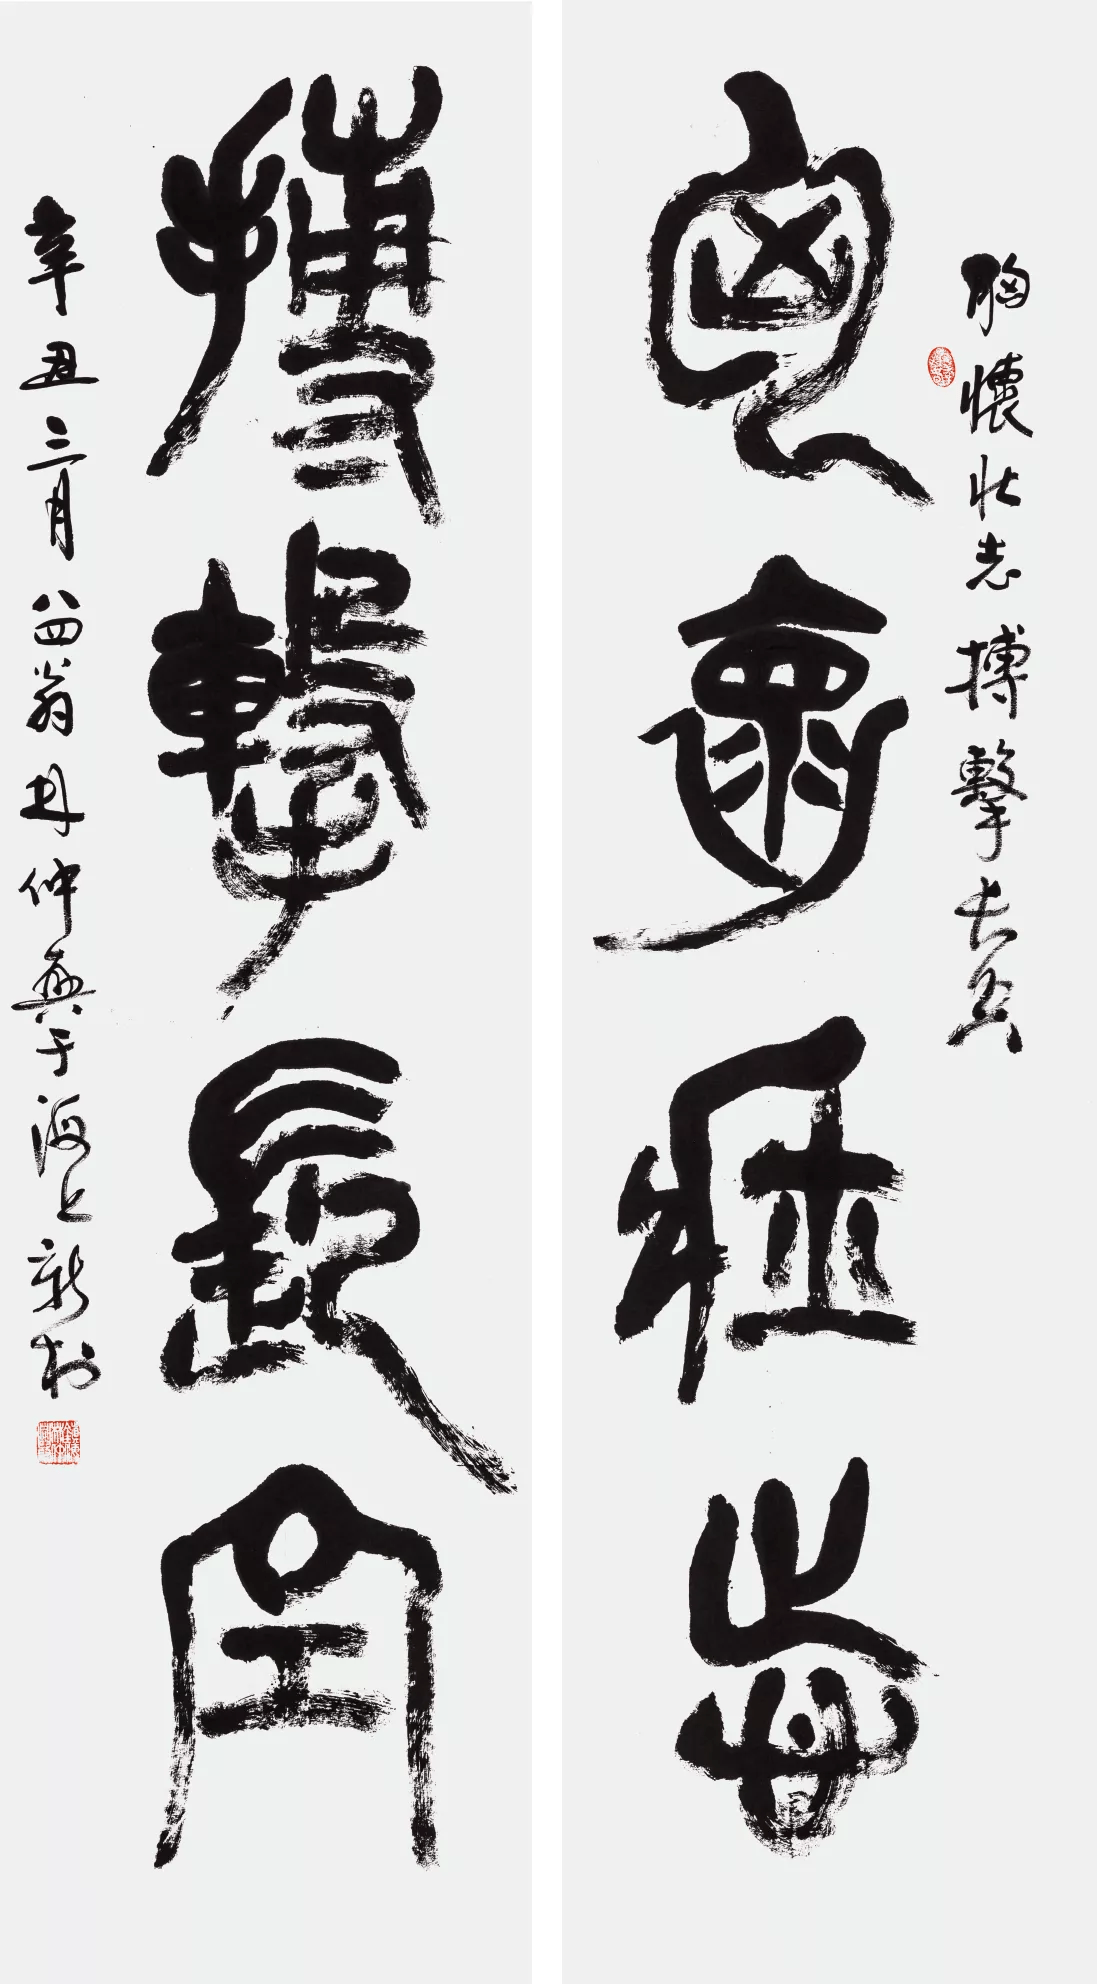 胸懷壯志搏擊長空
匈褱壯志
搏擊長空
辛丑三月八四翁林仲興于海上新村